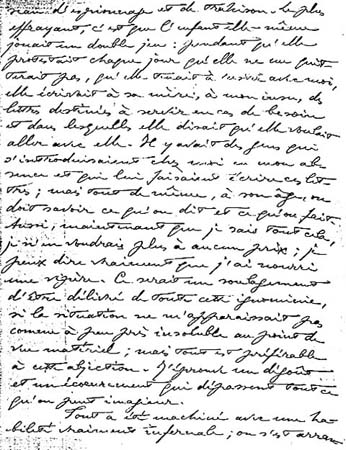 d'espionnage et de trahison. Le plus
effrayant, c'est que l'enfant elle-même
jouait un double jeu : pendant qu'elle
protestait chaque jour qu'elle ne me quit-
terait pas, qu'elle tenait à vivre avec moi,
elle écrivait à sa mère, à mon insu, des
lettres destinées à servir en cas de besoin
et dans lesquelles elle disait qu'elle voulait
aller avec elle. Il y avait des gens qui
s'introduisaient chez moi en mon ab-
sence et qui lui faisaient écrire ces let-
tres ; mais tout de même, à son âge, on
doit savoir ce qu'on dit et ce qu'on fait.
Aussi, maintenant que je sais tout cela,
je n'en voudrais plus à aucun prix ; je
peux dire vraiment que j'ai nourri
une vipère. Ce serait un soulagement
d'être délivré de toute cette ignominie,
si la situation ne m'apparaissait pas
comme à peu près insoluble au point de
vue matériel ; mais tout est préférable
à cette abjection. J'éprouve un dégoût
et un écœurement qui dépassent tout ce
qu'on peut imaginer.
Tout a été machiné avec une ha-
bileté vraiment infernale ; on s'est arran